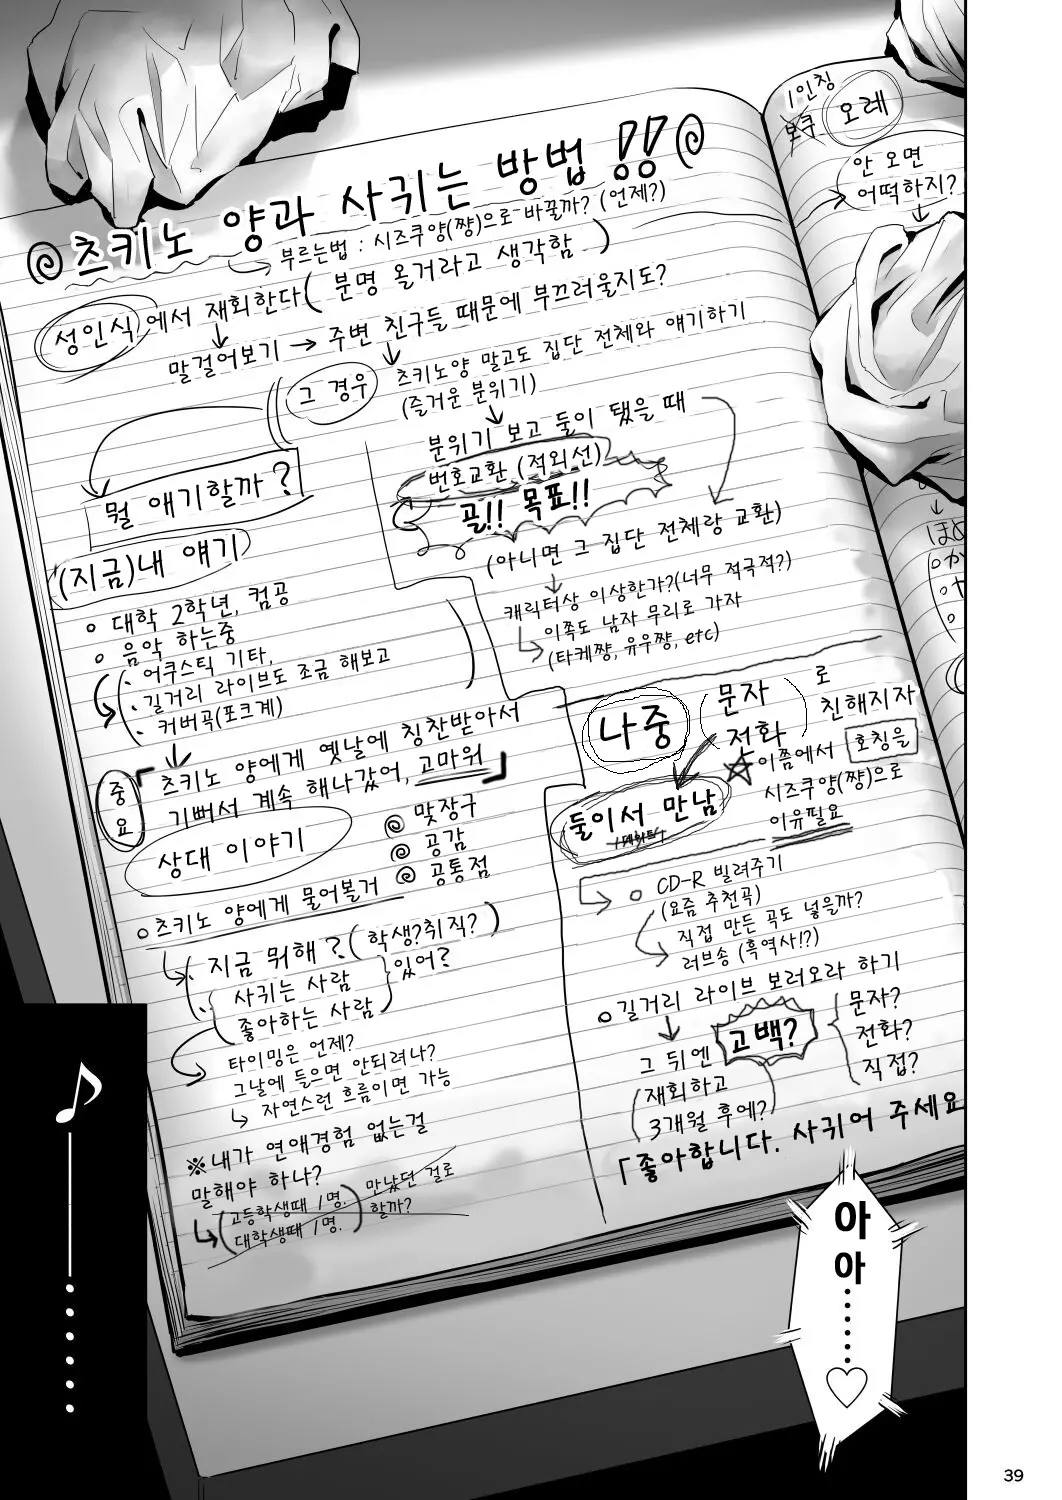 츠키노 양과 사귀는 방법 !!
부르는법 : 시즈쿠양(쨩)으로 바꿀까? (언제?)
성인식에서 재회한다(분명 올거라고 생각함)
말걸어보기 → 주변 친구들 때문에 부끄러울지도?
그 경우
츠키노양 말고도 집단 전체와 얘기하기
(즐거운 분위기)
분위기 보고 둘이 됐을 때
번호교환 (적외선)
골!! 목표!!
(아니면 그 집단 전체랑 교환)
캐릭터상 이상한가?(너무 적극적?)
이쪽도 남자 무리로 가자
(타케쨩, 유우쨩, etc)
뭘 얘기할까?
(지금)내 얘기
대학 2학년, 컴공
음악 하는중
· 어쿠스틱 기타,
· 길거리 라이브도 조금 해보고
· 커버곡(포크계)
중요
「츠키노 양에게 옛날에 칭찬받아서
기뻐서 계속 해나갔어, 고마워」
상대 이야기
맞장구
공감
공통점
츠키노 양에게 물어볼거
· 지금 뭐해? (학생?취직?)
· 사귀는 사람
좋아하는 사람
있어?
타이밍은 언제?
그날에 들으면 안되려나?
자연스런 흐름이면 가능
※내가 연애경험 없는걸
말해야 하나?
(고등학생때 1명.
대학생때 1명.)
만났던 걸로
할까?
나중
(문자
전화)
로
친해지자
☆이쯤에서 호칭을
시즈쿠양(쨩)으로
이유필요
둘이서 만남
CD-R 빌려주기
(요즘 추천곡)
직접 만든 곡도 넣을까?
러브송 (흑역사!?)
길거리 라이브 보러오라 하기
그 뒤엔 고백?
문자?
전화?
직접?
(재회하고
3개월 후에?)
「좋아합니다. 사귀어 주세요
1인칭
보쿠 오레
안 오면
어떡하지?
♪
아
아……♡
39